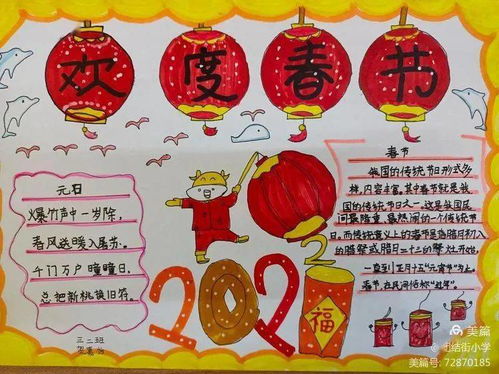 欢度春节
元日
爆竹声中一岁除，
春风送暖入屠苏．
千门万户曈曈日，
总把新桃换旧符．
春节
我国的传统节日形式多
样，内容丰富．其中春节就是我
国的传统节日之一．这是我国民
间最隆重、最热闹的一个传统节
日．而传统意义上的春节是指腊月初八
的腊祭或腊月二十三的祭灶开始，
一直到正月十五“元宵节”为止．
春节，在民间俗称“过年”
2021
福
三二班
美篇
@团结街小学
美篇号: 72870185